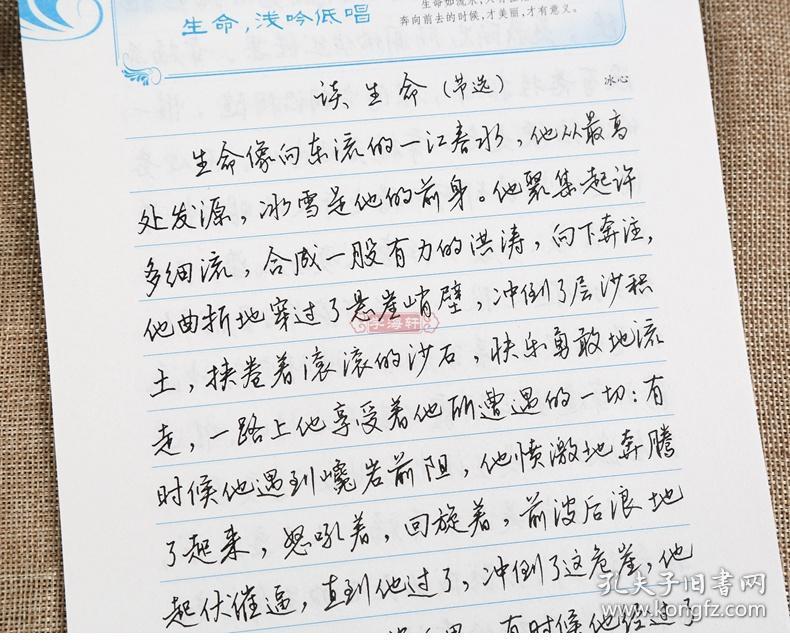 生命，浅吟低唱
奔向前去的时候，才美丽，才有意义。
谈生命（节选）
冰心
生命像向东流的一江春水，他从最高
处发源，冰雪是他的前身。他聚集起许
多细流，合成一股有力的洪涛，向下奔注，
他曲折地穿过了悬崖峭壁，冲倒了层沙积
土，挟卷着滚滚的沙石，快乐勇敢地流
走，一路上他享受着他所遭遇的一切：有
时候他遇到巉岩前阻，他愤激地奔腾
了起来，怒吼着，回旋着，前波后浪地
起伏催逼，直到他过了，冲倒了这危崖，他
有时候他经过了
学海轩
孔夫子旧书网
www.kongfz.com